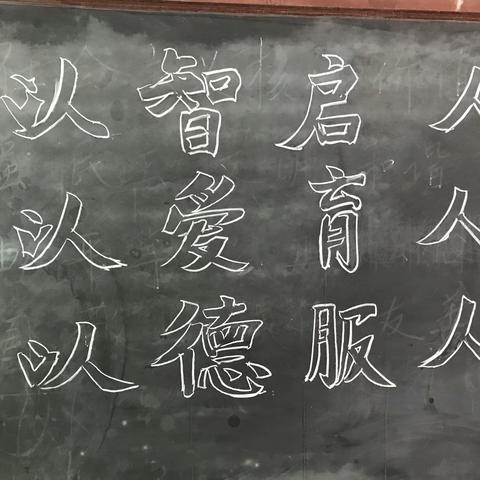 以智启人
以爱育人
以德服人